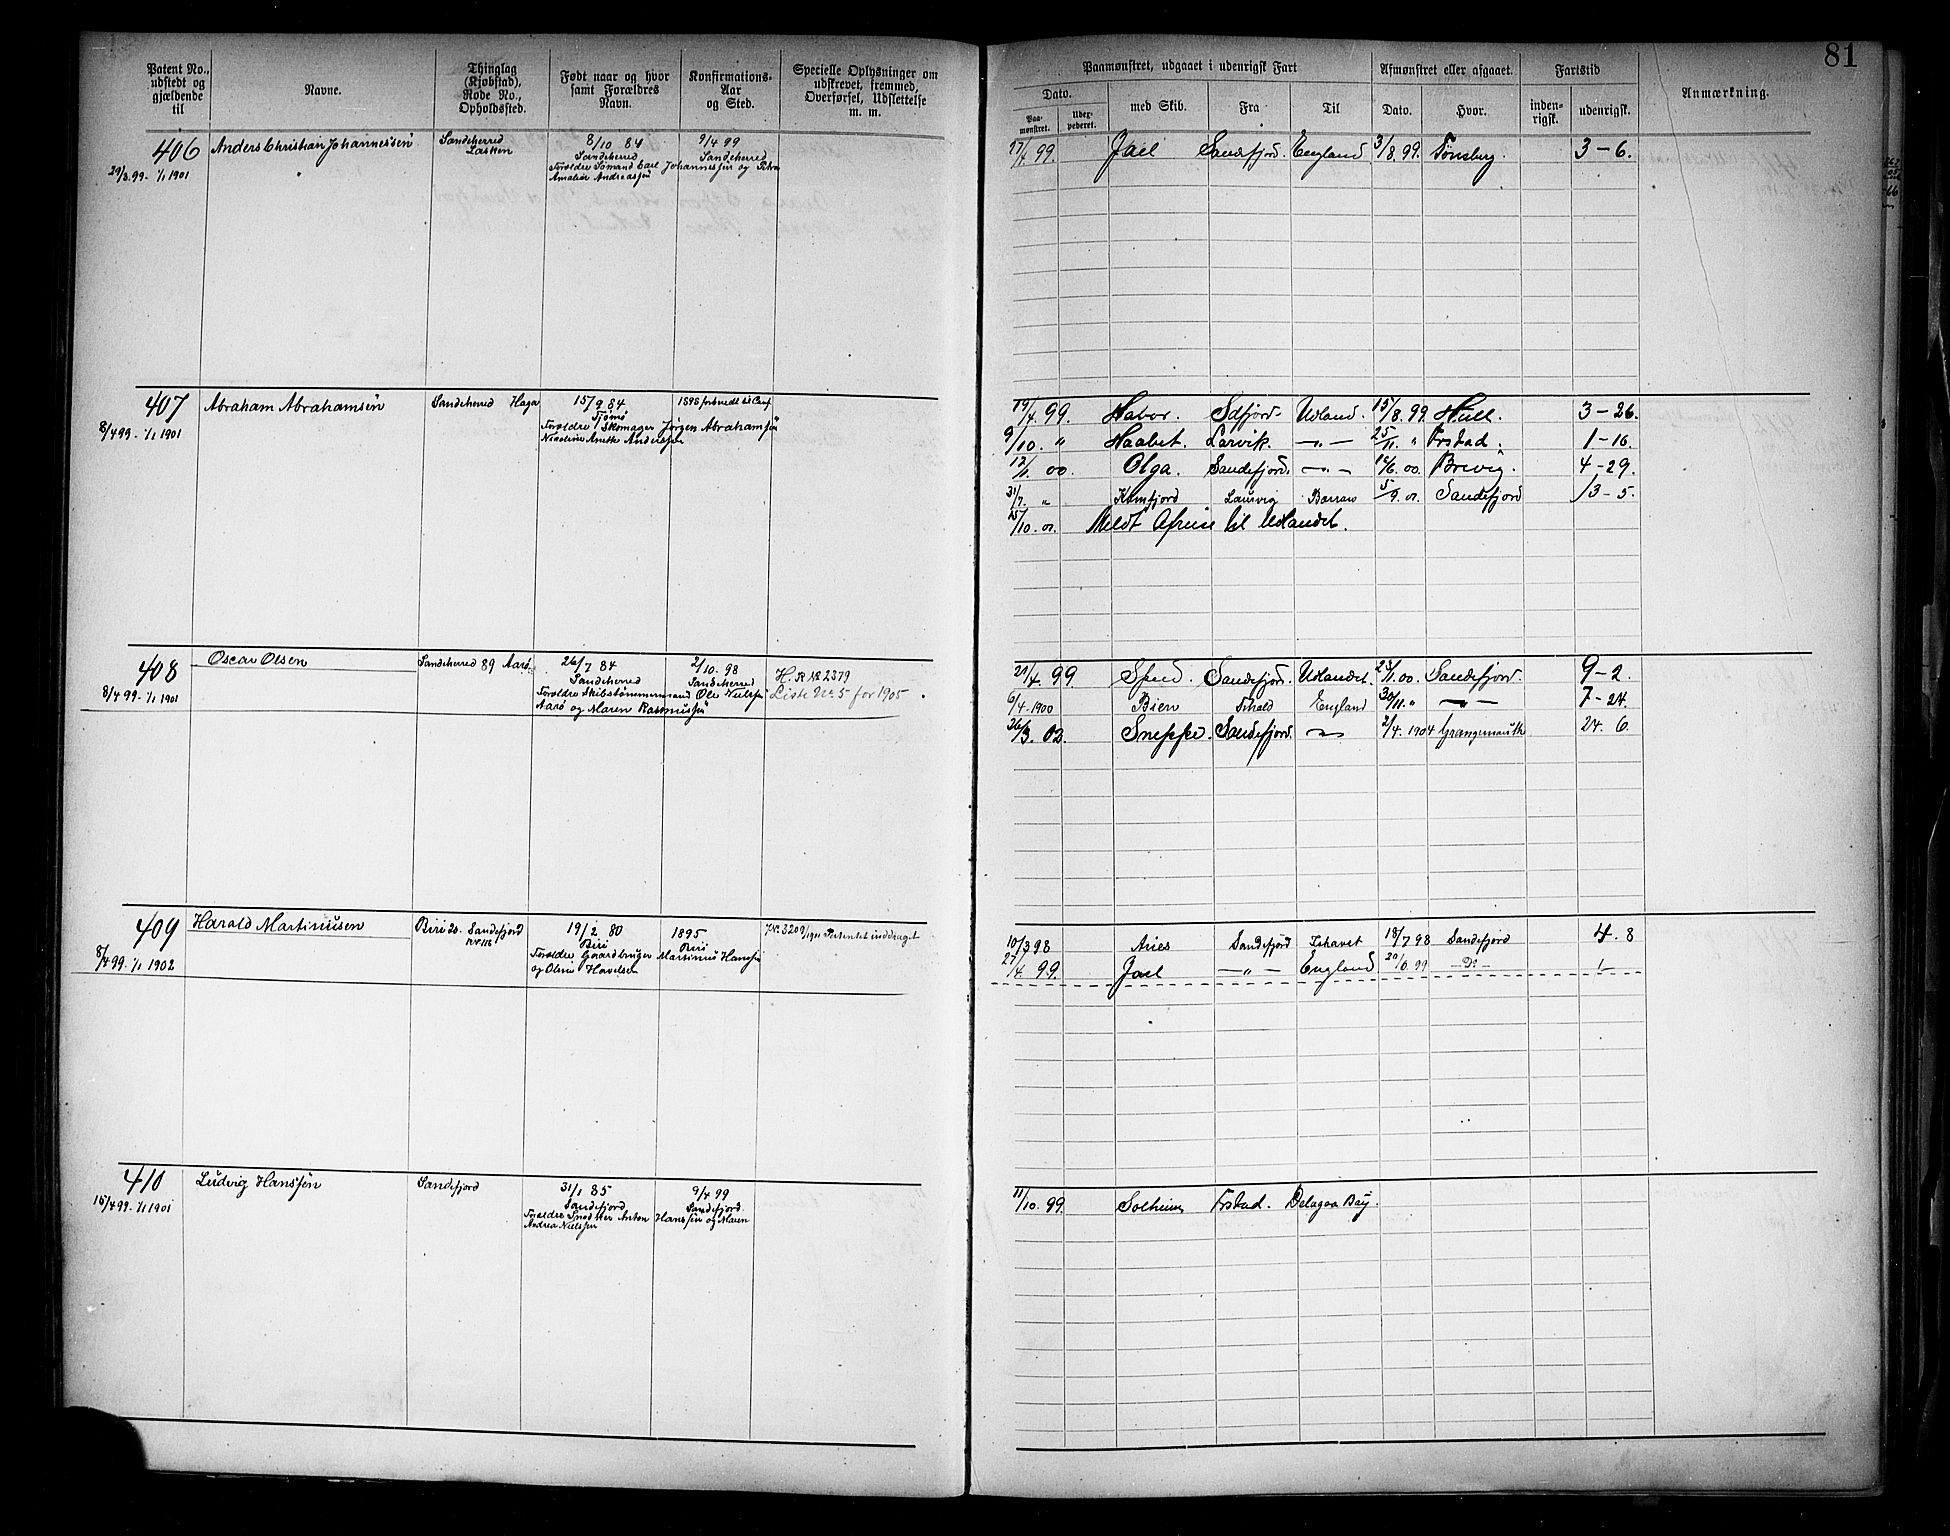 81
Patent No., udstedt og gjældende til
Navne.
Thinglag (Kjøbstad), Rode No., Opholdssted.
Født naar og hvor samt Forældres Navn.
Konfirmations-Aar og Sted.
Specielle Oplysninger om udskrevet, fremmed, Overførsel, Udslettelse m. m.
Paamønstret, udgaaet i udenrigsk Fart
Dato.
Paa-mønstret.
Uder-pederet.
med Skib.
Fra
Til
Afmønstret eller afgaaet.
Dato.
Hvor.
Fartstid
inden-rigsk.
udenrigsk.
Anmærkning.
406 Anders Christian Johannessen Sandeherred 8/10 84 9/4 99
Sandeherred Sandeherred
1/1 1901
Forældre Carl Johannessen og
Amalie Andreassen
99. Jael Sandefjord. England 3/8. 99. Tønsberg. 3-6.
407 Abraham Abrahamsen Sandeherred Haga 15/9 84
Tjømø
8/4 99. 1/1 1901
Forældre Skomager Jørgen Abrahamsen
Nicoline Anette Anderssen
19/4 99. Habor. Sdfjord Udland. 15/8. 99. Hull. 3-26.
9/10. " Haabet. Larvik. —„— 25/11. " Frstad. 1-16.
12/1. 00. Olga. Sandefjord. —„— 00. Brevig. 4-29.
31/7. " Laurvig 5/9. Sandefjord 5.
25/10. Meldt Afreise til Udlandet.
408 Oscar Olsen Sandeherred 89 Aarø 26/7 84 2/10. 98 H. R No 2379
Sandeherred Sandeherred Liste No 5 for 1905
8/4 99. 1/1 1901
Forældre Skibstømmermand Ole Nielsen
Aarø og Maren Rasmussen
99. Sandefjord. Udlandet. 00. Sandefjord. 9-2.
6/4. 1900 Bien England 30/11. " —„— 7-24.
26/3. 02. Sneppe. Sandefjord. 2/4. 1904 Grangemouth 24. 6.
409 Harald Martinusen Biri 20. Sandefjord 19/2 80 1895
Biri Biri
8/4 99. 1/1 1902
Forældre Gaardbruger Martinus Hansen
og Oline Havelsen
Patentet inddraget
10/3 98 Aries Sandefjord Ishavet 18/7 98 Sandefjord 4. 8
27/4. 99. Jael —„— England 99 —Do—
410 Ludvig Hanssen Sandefjord 31/1 85 9/4 99
Sandefjord Sandefjord.
15/4 99. 1/1 1901
Forældre Anton Hanssen og Maren
Andrea Nielsen
11/10. 99. Solheim Frstad. Delagoa Bay.